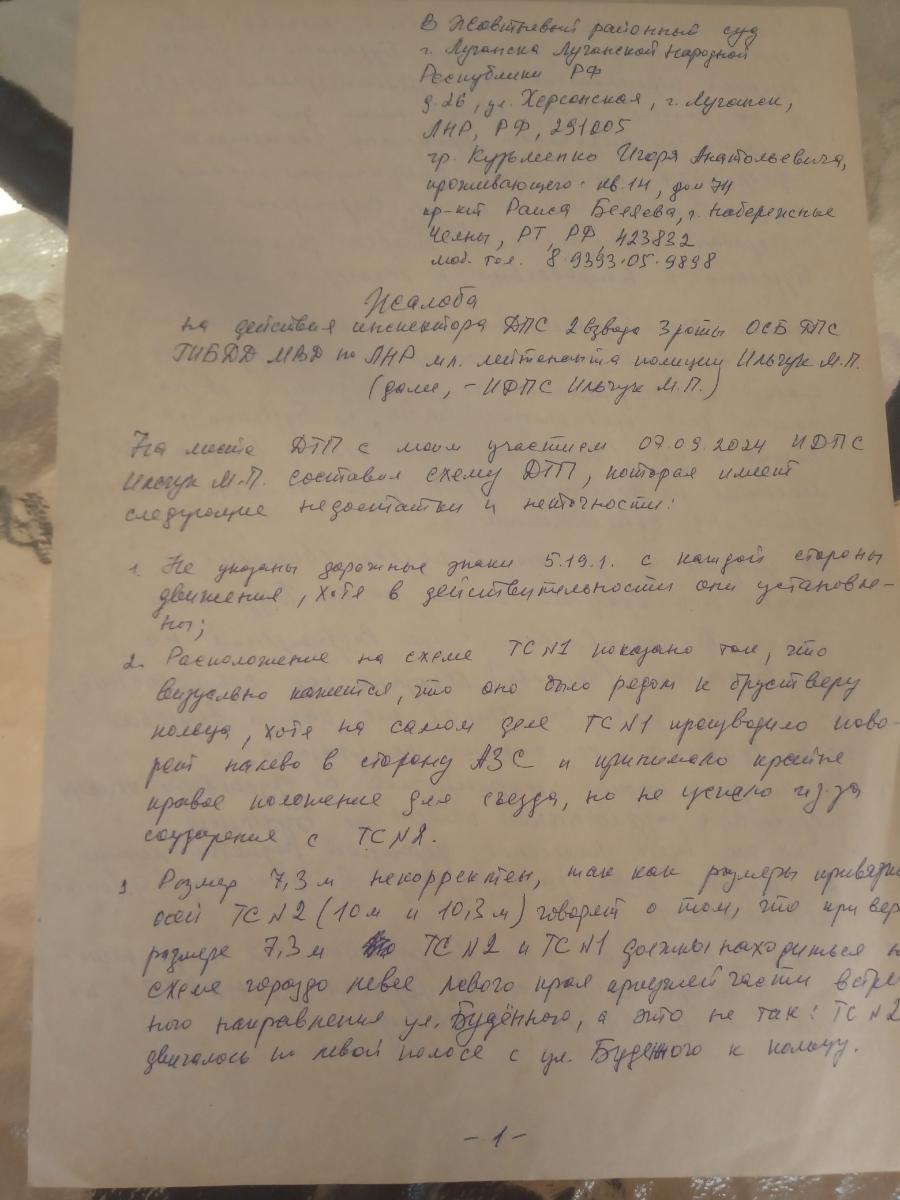 В Жовтневый районный суд
г. Луганска Луганской Народной
Республики РФ
д. 26, ул. Херсонская, г. Луганск,
ЛНР, РФ, 291005
гр. Кузьменко Игоря Анатольевича,
проживающего: кв. 14, дом 74
пр-кт Раиса Беляева, г. Набережные
Челны, РТ, РФ, 423832
моб. тел. 8.9393.05.9898
Жалоба
на действия инспектора ДПС 2 взвода 3 роты ОСБ ДПС
ГИБДД МВД по ЛНР мл. лейтенанта полиции Ильчук М.П.
(далее, - ИДПС Ильчук М.П.)
На месте ДТП с моим участием 07.09.2024 ИДПС
Ильчук М.П. составил схему ДТП, которая имеет
следующие недостатки и неточности:
1. Не указаны дорожные знаки 5.19.1. с каждой стороны
движения, хотя в действительности они установле-
ны;
2. Расположение на схеме ТС №1 показано так, что
визуально кажется, что оно было рядом к брустверу
кольца, хотя на самом деле ТС №1 производило пово-
рот налево в сторону АЗС и принимало крайне
правое положение для съезда, но не успело из-за
соударения с ТС №2.
3 Размер 7,3 м некорректен, так как размеры привязки
осей ТС №2 (10м и 10,3м) говорят о том, что при
размере 7,3 м ТС №2 и ТС №1 должны находиться
схеме гораздо левее левого края проезжей части встреч
ного направления ул. Будённого, а это не так: ТС №2
двигалось по левой полосе с ул. Буденного к кольцу.
- 1 -